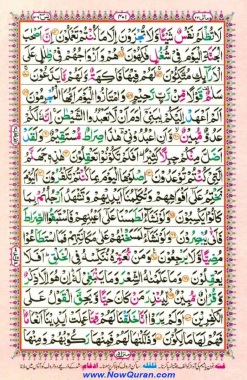 لَا تُظْلَمُ نَفْسٌ شَيْئًا وَّلَا تُجْزَوْنَ اِلَّا مَا كُنْتُمْ تَعْمَلُوْنَ اِنَّ اَصْحٰبَ
الْجَنَّةِ الْيَوْمَ فِيْ شُغُلٍ فٰكِهُوْنَ هُمْ وَاَزْوَاجُهُمْ فِيْ ظِلٰلٍ عَلَى
الْاَرَآئِكِ مُتَّكِـُٔوْنَ لَهُمْ فِيْهَا فَاكِهَةٌ وَّلَهُمْ مَّا يَدَّعُوْنَ
سَلٰمٌ قَوْلًا مِّنْ رَّبٍّ رَّحِيْمٍ وَامْتَازُوا الْيَوْمَ اَيُّهَا الْمُجْرِمُوْنَ
اَلَمْ اَعْهَدْ اِلَيْكُمْ يٰبَنِيْٓ اٰدَمَ اَنْ لَّا تَعْبُدُوا الشَّيْطٰنَ اِنَّهٗ لَكُمْ
عَدُوٌّ مُّبِيْنٌ وَّاَنِ اعْبُدُوْنِيْ هٰذَا صِرَاطٌ مُّسْتَقِيْمٌ وَلَقَدْ
اَضَلَّ مِنْكُمْ جِبِلًّا كَثِيْرًا اَفَلَمْ تَكُوْنُوْا تَعْقِلُوْنَ هٰذِهٖ جَهَنَّمُ
الَّتِيْ كُنْتُمْ تُوْعَدُوْنَ اِصْلَوْهَا الْيَوْمَ بِمَا كُنْتُمْ تَكْفُرُوْنَ اَلْيَوْمَ
نَخْتِمُ عَلٰٓى اَفْوَاهِهِمْ وَتُكَلِّمُنَآ اَيْدِيْهِمْ وَتَشْهَدُ اَرْجُلُهُمْ بِمَا
كَانُوْا يَكْسِبُوْنَ وَلَوْ نَشَآءُ لَطَمَسْنَا عَلٰٓى اَعْيُنِهِمْ فَاسْتَبَقُوا الصِّرَاطَ
فَاَنّٰى يُبْصِرُوْنَ وَلَوْ نَشَآءُ لَمَسَخْنٰهُمْ عَلٰى مَكَانَتِهِمْ فَمَا اسْتَطَاعُوْا
مُضِيًّا وَّلَا يَرْجِعُوْنَ وَمَنْ نُّعَمِّرْهُ نُنَكِّسْهُ فِي الْخَلْقِ اَفَلَا
يَعْقِلُوْنَ وَمَا عَلَّمْنٰهُ الشِّعْرَ وَمَا يَنْۢبَغِيْ لَهٗ اِنْ هُوَ اِلَّا ذِكْرٌ
وَّقُرْاٰنٌ مُّبِيْنٌ لِّيُنْذِرَ مَنْ كَانَ حَيًّا وَّيَحِقَّ الْقَوْلُ عَلَى
الْكٰفِرِيْنَ اَوَلَمْ يَرَوْا اَنَّا خَلَقْنَا لَهُمْ مِّمَّا عَمِلَتْ اَيْدِيْنَآ اَنْعَامًا
فَهُمْ لَهَا مٰلِكُوْنَ وَذَلَّلْنٰهَا لَهُمْ فَمِنْهَا رَكُوْبُهُمْ وَمِنْهَا
www.NowQuran.com